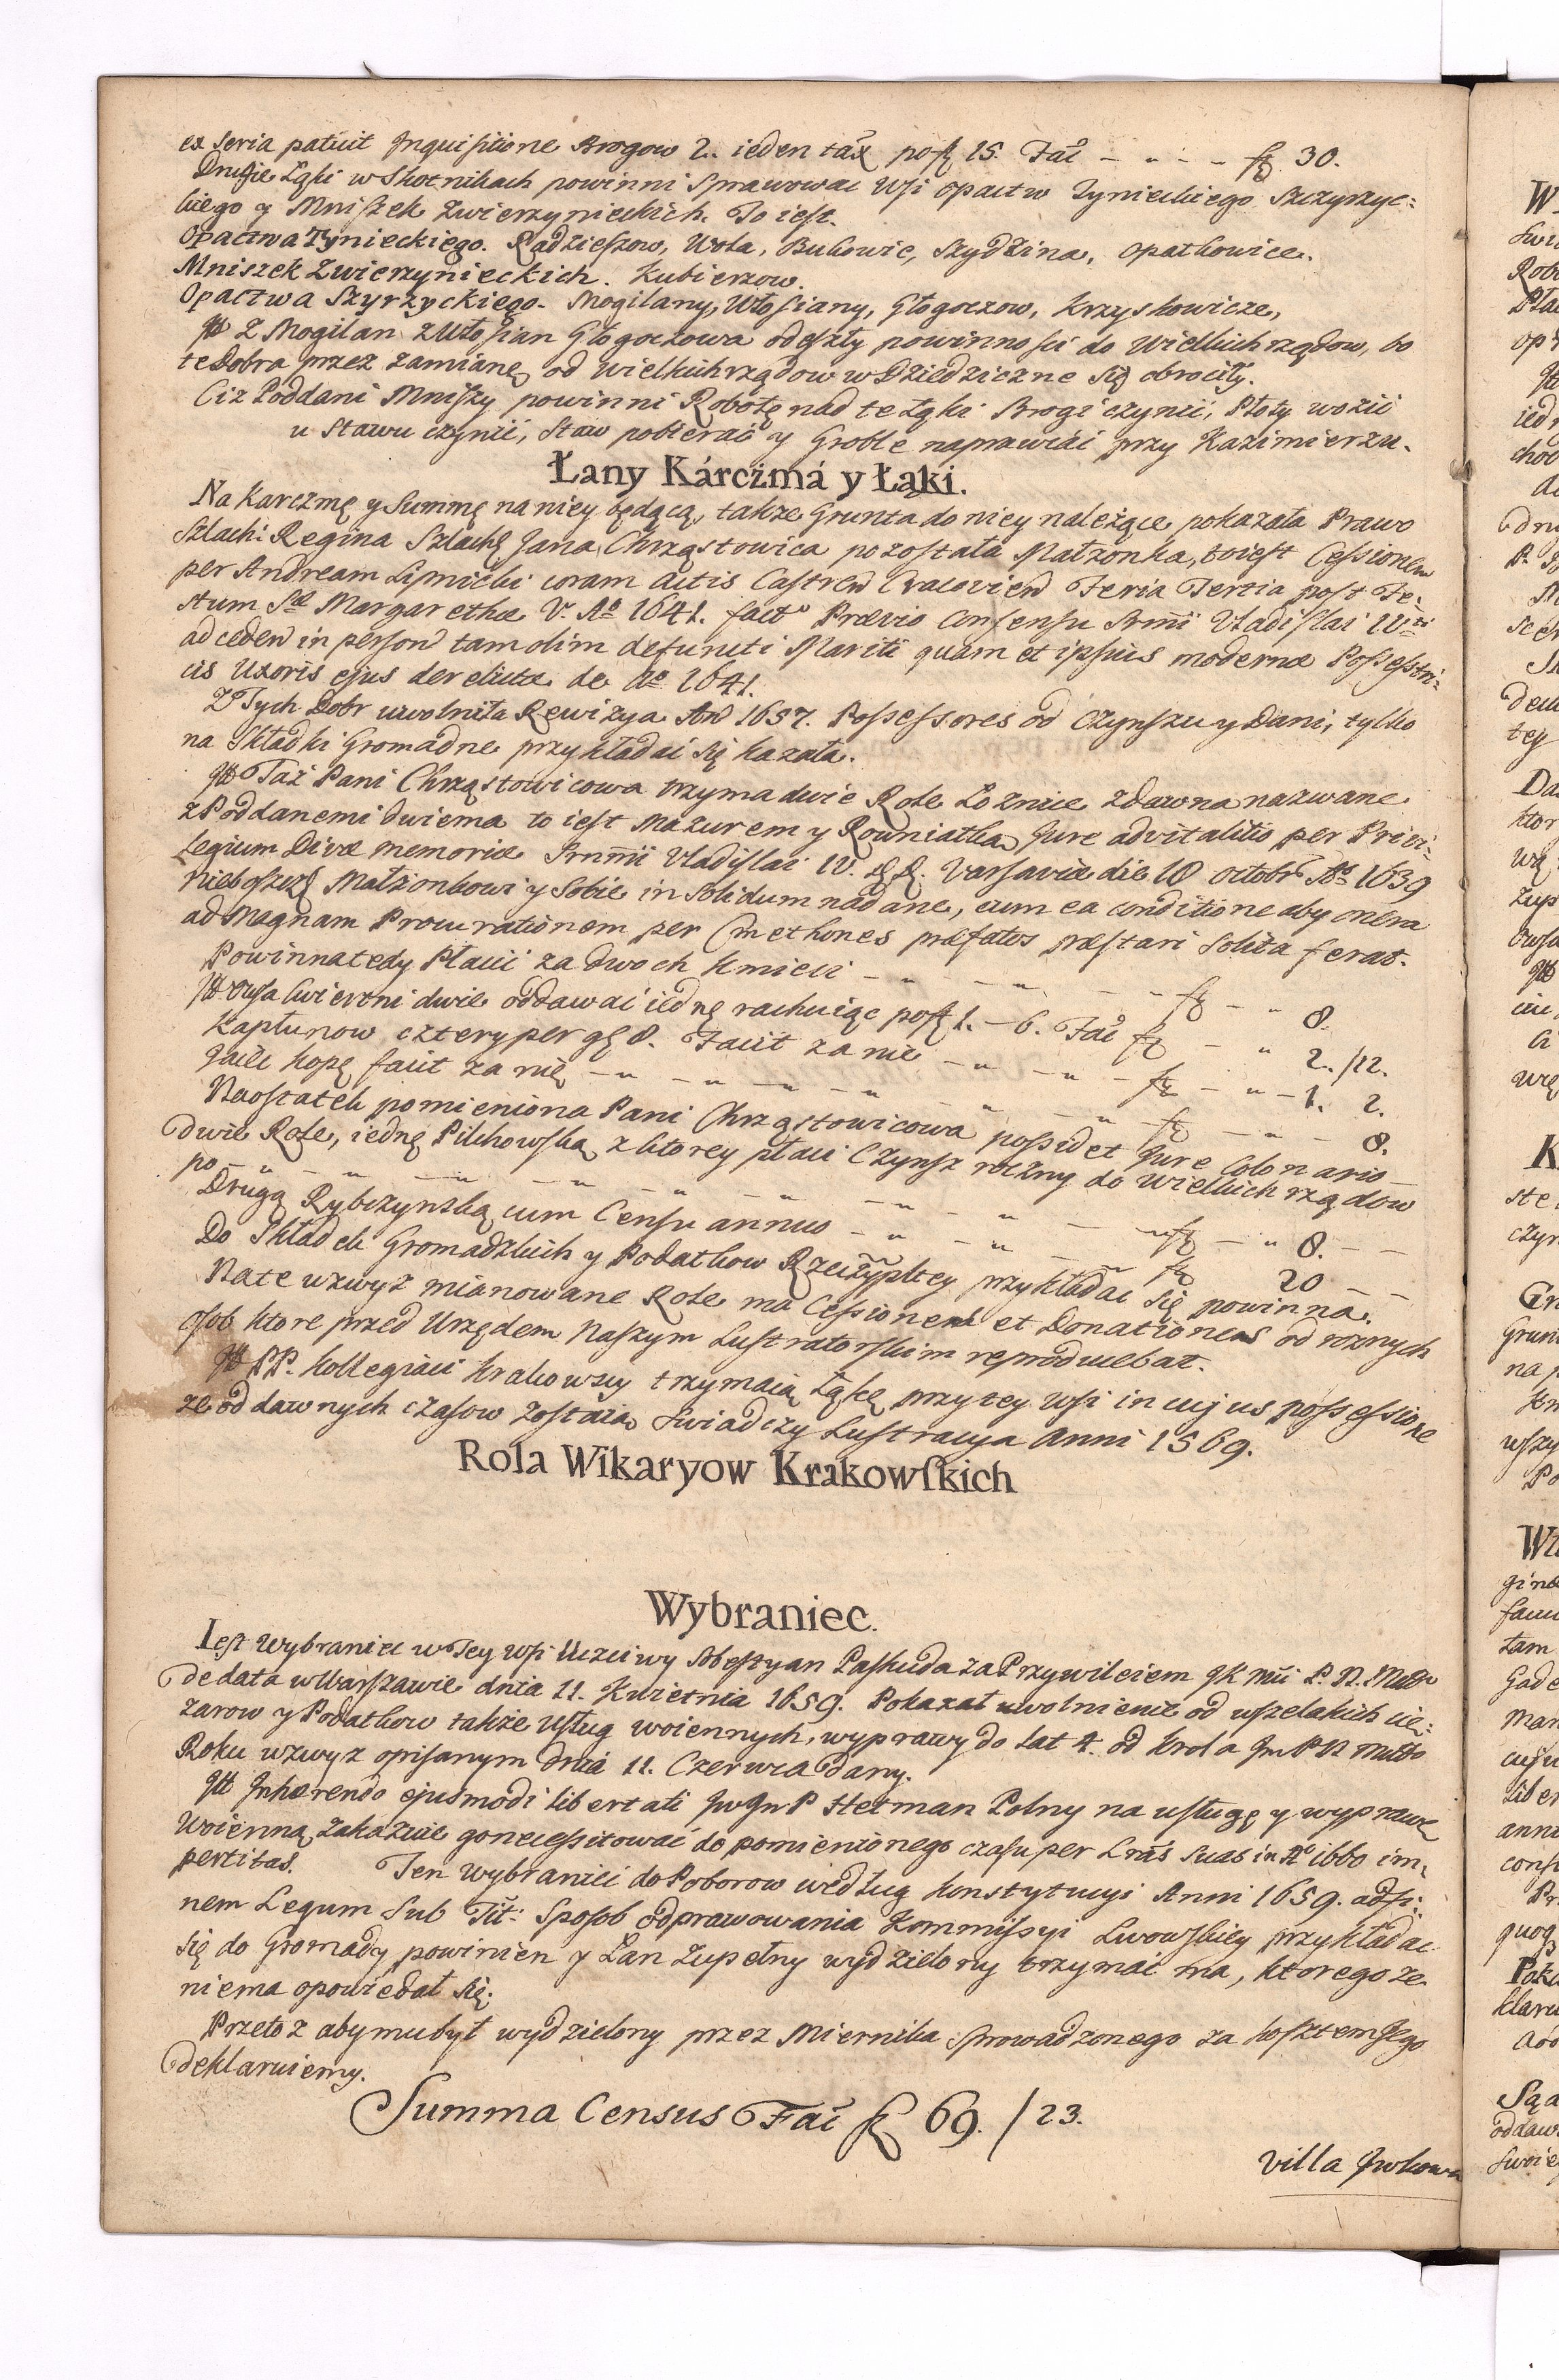 ex seria patuit Inquisitione Brogow 2. ieden tax po fl 15. Fac̃ — „ — „ fl 30.
Drugie Łąki w Skotnikach powinni Sprawowac Wsi Opactw Tynieckiego Szczyrzyc:
kiego y Mniszek Zwierzynieckich. To iest.
Opactwa Tynieckiego. Radzieszow, Wola, Bukowic, Szydzina, Opatkowice.
Mniszek Zwierzynieckich. Kubierzow.
Opactwa Szyrzyckiego. Mogilany, Włosiany, Głogoczow, Krzyskowicze,
Itt Z Mogilan z Włosian Głogoczowa odeszły powinnosci do Wielkich rządow, bo
te Dobra przez zamianę od Wielkich rządow w Dziedziczne się obrociły.
Ciz Poddani Mniszy powinni Robotę nad te Łąki Brogi czynić, Płoty wozić
u Stawu czynić, Staw pobierać y Groble naprawiać przy Kazimierzu.
Łany Kárcżmá y Łąki.
Na Karczmę y Summę na niey będącą, takze Grunta do niey należące pokazała Prawo
Szlach: Regina Szlachę Jana Chrząstowica pozostała Małzonka, to iest Cessionem
per Andream Lipnicki coram Actis Castren Cracovien Feria Tertia post Fe:
stum Sæ Margarethæ V. Ao 1641. facto Prævio Consensu Srmi Vladislai IVti
ad ceden in person tam olim defuncti Mariti quam et ipsius modernæ Possessri:
cis Uxoris ejus derelictæ de Ao 1641.
Z Tych Dobr uwolniła Rewizya An 1637. Possessores od Czynszu y Dani, tylko
na Składki Gromadne przykładać się kazała.
Itt Taż Pani Chrząstowicowa trzyma dwie Role Łoznie zdawna nazwane
z Poddanemi dwiema to iest Mazurem y Rowniatką Jure advitalitio per Privi:
legium Divæ memoriæ Srmii Vladislai IV. Varsaviæ die 18 Octobr Ao 1639
Nieboszczę Małzonkowi y Sobie in Solidum nadane, cum ea conditione aby onera
ad Magnam Procurationem per Cmethones præfatos præstari Solita ferat.
Powinna tedy Płacić za dwoch Kmieci — „ — „ — fl — „ 8.
Itt Owsa cwiertni dwie oddawać iednę rachuiąc po fl 1. — 6. Fac̃ fl — „ 2. /12.
Kapłunow cztery per g 8. Facit za nie — „ — „ — fl — „ — 1. 2.
Jaiec kopę facit za nię — „ — „ — „ — „ — „ fl — „ — 8.
Naostatek pomieniona Pani Chrząstowicowa possidet Jure Colonario
dwie Role, iednę Pilchowską z ktorey płaci Czynsz roczny do Wielkich rządow
po — „ — „ — „ — „ — „ — „ — „ fl — „ 8. — —
Drugą Rybczynską cum Censu annuo — „ — „ — „ fl 20 — —
Do Składek Gromadzkich y Podatkow Rzeczypltey przykładac się powinna.
Na te wzwyz mianowane Role ma Cessionem et Donationem od roznych
osob ktore przed Urzędem Naszym Lustratorskim reproducebat.
Itt PP. Kollegiaci Krakowscy trzymaią Łąkę przy tey Wsi in cujus possessione
ze od dawnych czasow zostaią Swiadczy Lustracya Anni 1569.
Rola Wikaryow Krakowskich
Wybraniec.
Iest Wybraniec w Tey Wsi Uczciwy Sobestyan Paskuda za Przywileiem JK Mci P. N. Mło
de data w Warszawie dnia 11. Kwietnia 1659. Pokazał uwolnienie od wszelakich cię:
zarow y Podatkow także Usług woiennych, wyprawy do lat 4. od Krola Jm P N Młło
Roku wzwyz opisanym dnia 11. Czerwca dany.
Itt Inhærendo ejusmodi libertati Jw Jm P Hetman Polny na usługę y wyprawę
Woienną, zakazuie go necessitować do pomienionego czasu per Lrãs Suas in Ao 1660 im:
pertitas. Ten Wybraniec do Poborow według Konstytucyi Anni 1659. ad fi:
nem Legum Sub Tit: Sposob odprawowania Kommissyi Lwowskiey przykładac
się do Gromady powinien y Łan Zupełny wydzielony trzymać ma, ktorego ze
niema opowiedał się.
Przeto z aby mu był wydzielony przez Miernika sprowadzonego za kosztem Jego
deklaruiemy.
Summa Census Fac̃ fl 69. / 23.
Villa